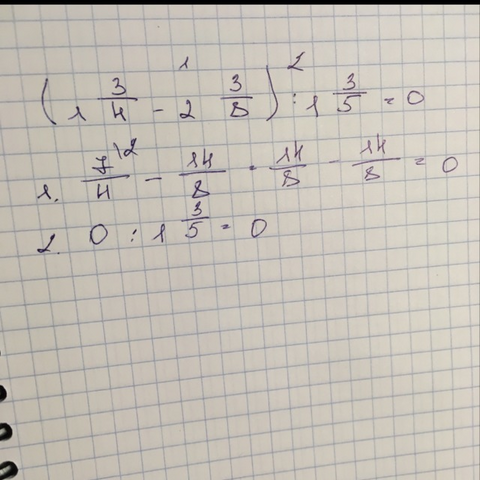 (1 3/4 - 2 3/8) : 1 3/5 = 0
1. 7/4 \2 - 14/8 = 14/8 - 14/8 = 0
2. 0 : 1 3/5 = 0